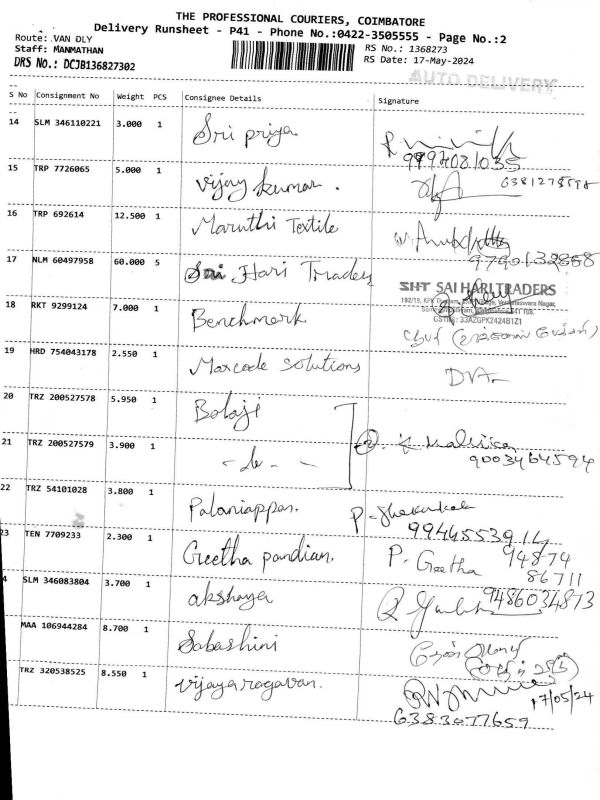 THE PROFESSIONAL COURIERS, COIMBATORE
Delivery Runsheet - P41 - Phone No.:0422-3505555 - Page No.:2
Route: VAN DLY
Staff: MANMATHAN
DRS No.: DCJB136827302
RS No.: 1368273
RS Date: 17-May-2024
AUTO DELIVERY
S No Consignment No Weight PCS Consignee Details Signature
14 SLM 346110221 3.000 1 Sri priya
9994081035
15 TRP 7726065 5.000 1 Vijay kumar .
16 TRP 692614 12.500 1 Maruthi Textile
9790132868
17 NLM 60497958 60.000 5 Sri Hari Traders
SHT SAI HARI TRADERS
18 RKT 9299124 7.000 1 Benchmark
GSTIN : 33AZGPK2424B1Z1
19 HRD 754043178 2.550 1 Maxcode solutions
20 TRZ 200527578 5.950 1 Balaji
21 TRZ 200527579 3.900 1 - do - -
9003464594
22 TRZ 54101028 3.800 1 Palaniappan.
23 TEN 7709233 2.300 1 Geetha pandian. P. Geetha 94874
86711
4 SLM 346083804 3.700 1 akshaya 9486034873
MAA 106944284 8.700 1 Sabashini
TRZ 320538525 8.550 1 Vijayaragavan. 17/05/24
6383077659